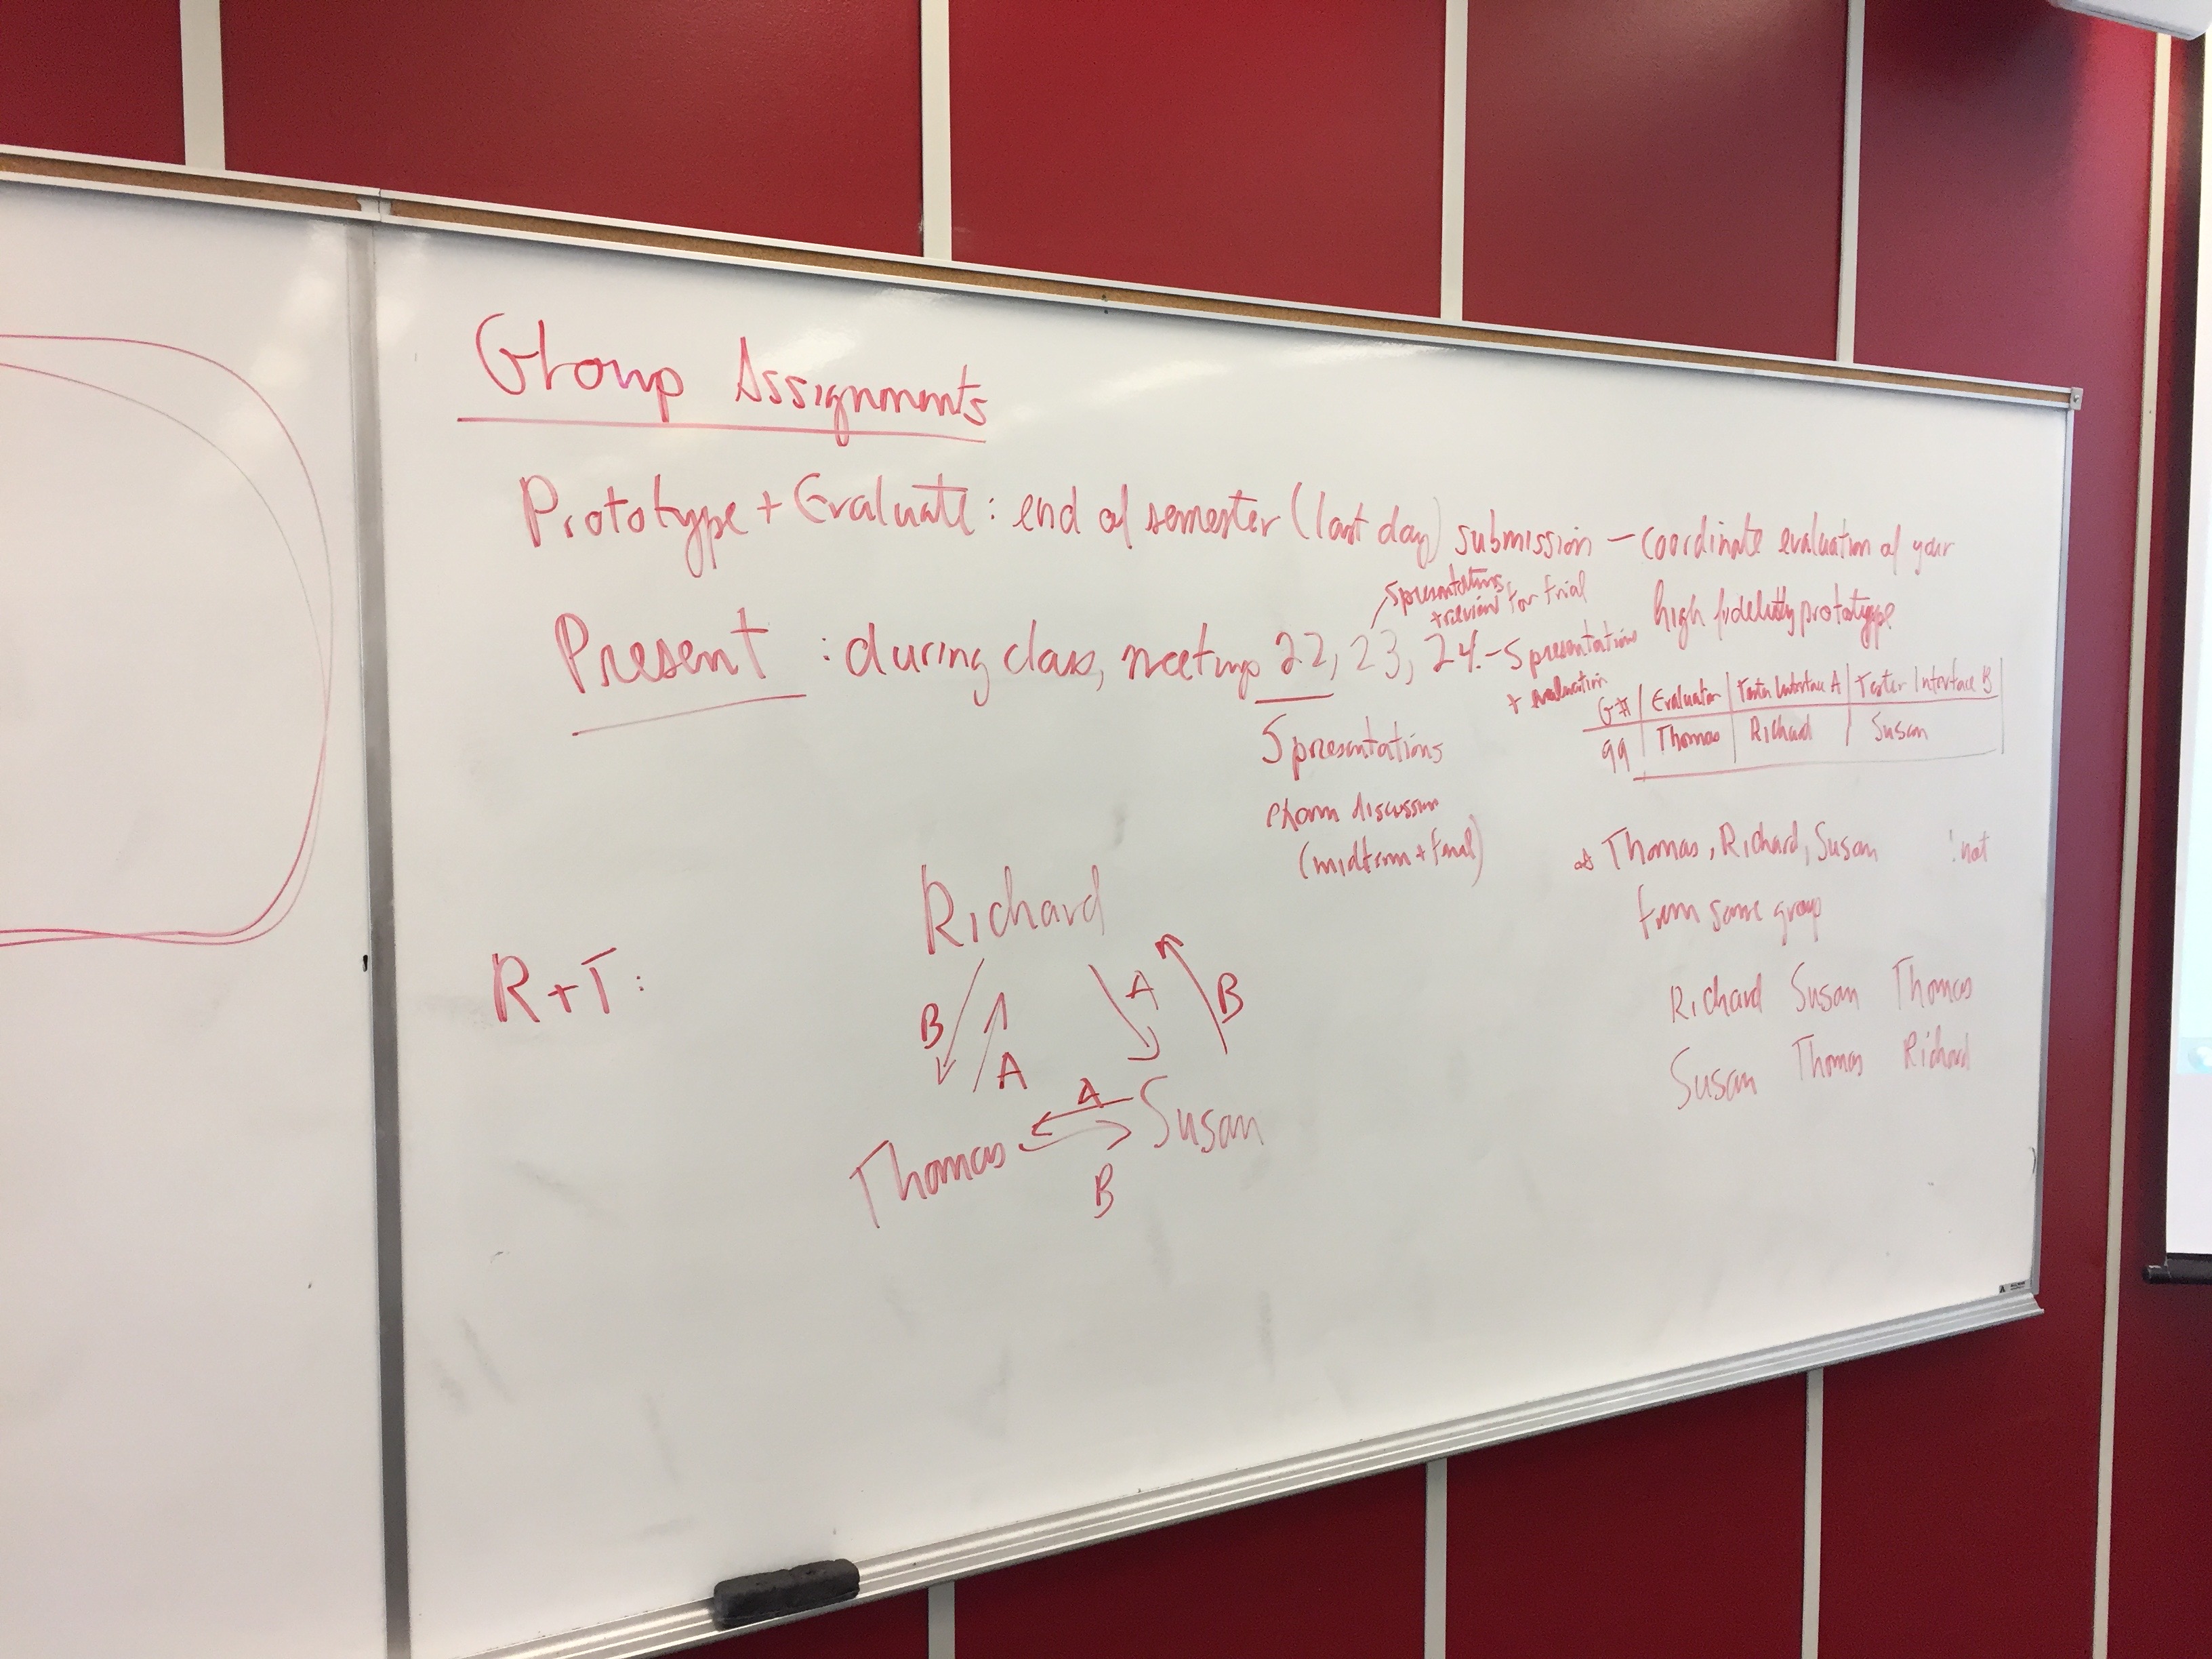 Group Assignments
Prototype + Evaluate : end of semester (last day) submission - coordinate evaluation of your
high fidelity prototype
5 presentations
+ review for final
Present : during class, meetings 22, 23, 24. - 5 presentations
+ evaluation
5 presentations
exam discussion
(midterm + final)
G# | Evaluator | Tester Interface A | Tester Interface B
99 | Thomas | Richard | Susan
Thomas, Richard, Susan : not
from same group
Richard Susan Thomas
Susan Thomas Richard
R+T :
Richard
B A A B
A
Thomas Susan
B